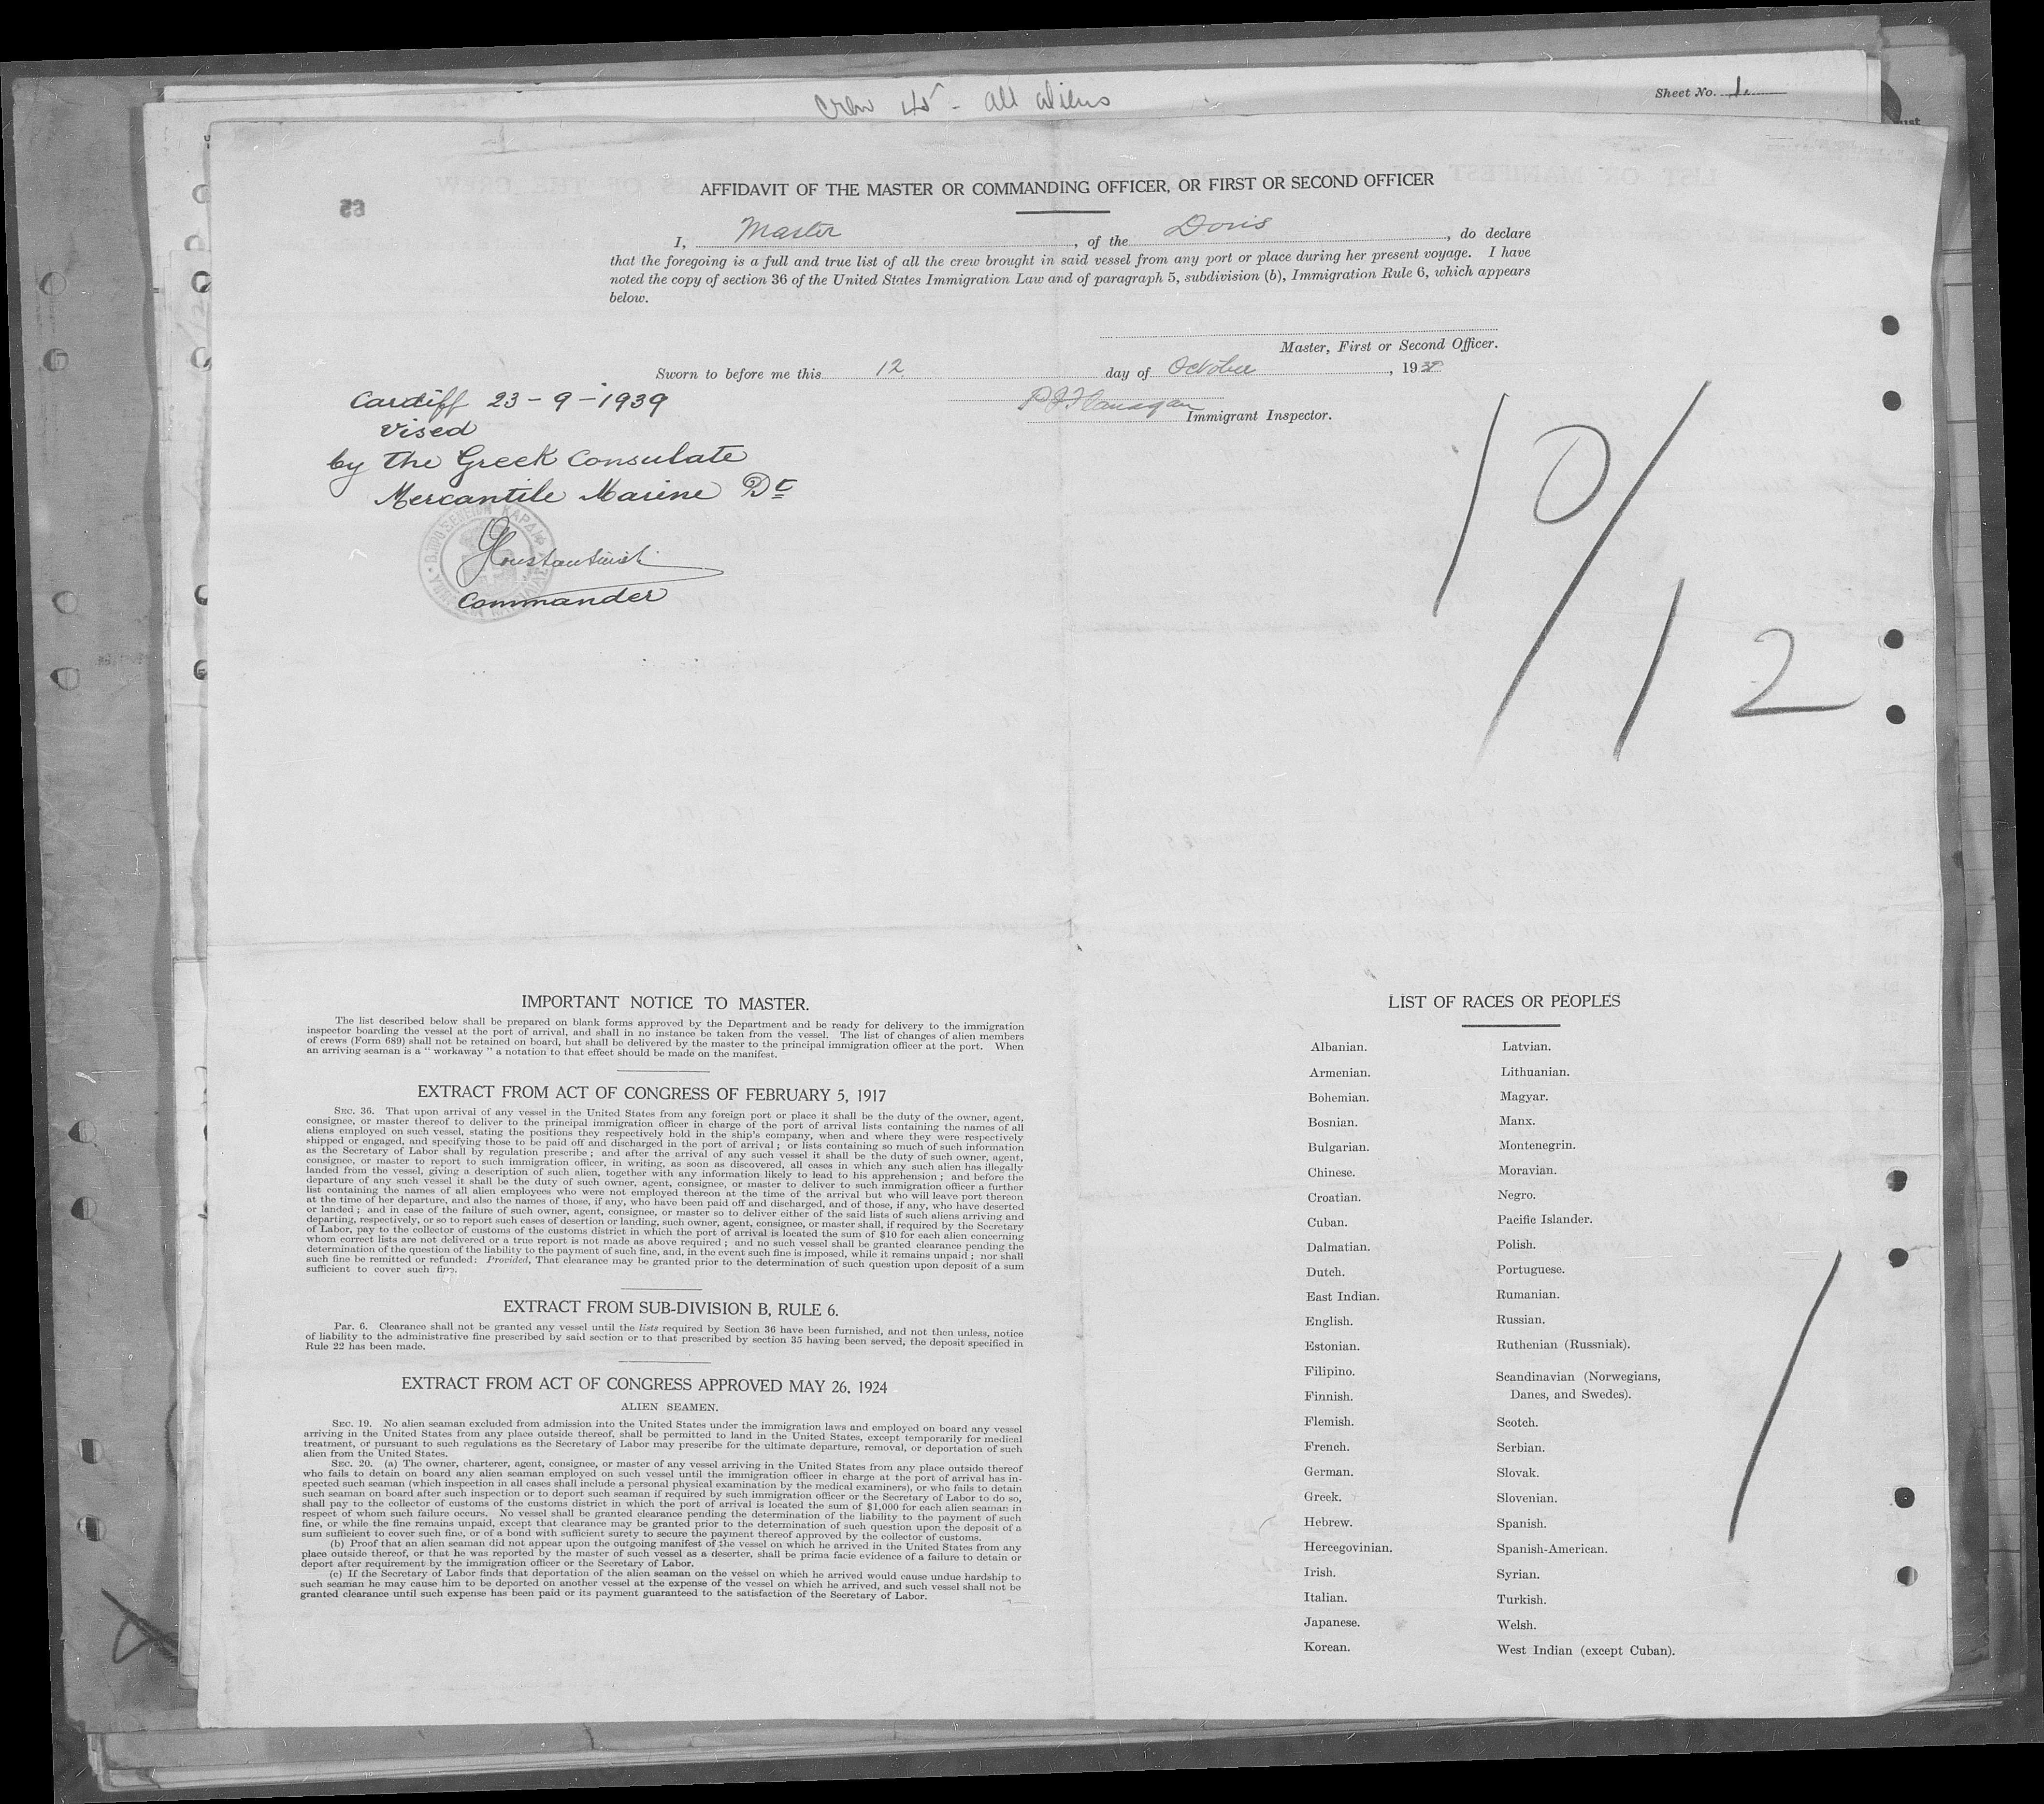 crew 45 - all aliens
Sheet No. 1.
AFFIDAVIT OF THE MASTER OR COMMANDING OFFICER, OR FIRST OR SECOND OFFICER
65
I, Master, of the Doris, do declare
that the foregoing is a full and true list of all the crew brought in said vessel from any port or place during her present voyage. I have
noted the copy of section 36 of the United States Immigration Law and of paragraph 5, subdivision (b), Immigration Rule 6, which appears
below.
Master, First or Second Officer.
Sworn to before me this 12 day of October, 19
P J Flanagan
Immigrant Inspector.
Cardiff 23-9-1939
vised
by the Greek Consulate
Mercantile Marine Dt
Commander
10/12
IMPORTANT NOTICE TO MASTER.
The list described below shall be prepared on blank forms approved by the Department and be ready for delivery to the immigration
inspector boarding the vessel at the port of arrival, and shall in no instance be taken from the vessel. The list of changes of alien members
of crews (Form 689) shall not be retained on board, but shall be delivered by the master to the principal immigration officer at the port. When
an arriving seaman is a " workaway " a notation to that effect should be made on the manifest.
EXTRACT FROM ACT OF CONGRESS OF FEBRUARY 5, 1917
SEC. 36. That upon arrival of any vessel in the United States from any foreign port or place it shall be the duty of the owner, agent,
consignee, or master thereof to deliver to the principal immigration officer in charge of the port of arrival lists containing the names of all
aliens employed on such vessel, stating the positions they respectively hold in the ship's company, when and where they were respectively
shipped or engaged, and specifying those to be paid off and discharged in the port of arrival ; or lists containing so much of such information
as the Secretary of Labor shall by regulation prescribe ; and after the arrival of any such vessel it shall be the duty of such owner, agent,
consignee, or master to report to such immigration officer, in writing, as soon as discovered, all cases in which any such alien has illegally
landed from the vessel, giving a description of such alien, together with any information likely to lead to his apprehension ; and before the
departure of any such vessel it shall be the duty of such owner, agent, consignee, or master to deliver to such immigration officer a further
list containing the names of all alien employees who were not employed thereon at the time of the arrival but who will leave port thereon
at the time of her departure, and also the names of those, if any, who have been paid off and discharged, and of those, if any, who have deserted
or landed ; and in case of the failure of such owner, agent, consignee, or master so to deliver either of the said lists of such aliens arriving and
departing, respectively, or so to report such cases of desertion or landing, such owner, agent, consignee, or master shall, if required by the Secretary
of Labor, pay to the collector of customs of the customs district in which the port of arrival is located the sum of $10 for each alien concerning
whom correct lists are not delivered or a true report is not made as above required ; and no such vessel shall be granted clearance pending the
determination of the question of the liability to the payment of such fine, and, in the event such fine is imposed, while it remains unpaid ; nor shall
such fine be remitted or refunded: Provided, That clearance may be granted prior to the determination of such question upon deposit of a sum
sufficient to cover such fine.
EXTRACT FROM SUB-DIVISION B, RULE 6.
Par. 6. Clearance shall not be granted any vessel until the lists required by Section 36 have been furnished, and not then unless, notice
of liability to the administrative fine prescribed by said section or to that prescribed by section 35 having been served, the deposit specified in
Rule 22 has been made.
EXTRACT FROM ACT OF CONGRESS APPROVED MAY 26, 1924
ALIEN SEAMEN.
SEC. 19. No alien seaman excluded from admission into the United States under the immigration laws and employed on board any vessel
arriving in the United States from any place outside thereof, shall be permitted to land in the United States, except temporarily for medical
treatment, or pursuant to such regulations as the Secretary of Labor may prescribe for the ultimate departure, removal, or deportation of such
alien from the United States.
SEC. 20. (a) The owner, charterer, agent, consignee, or master of any vessel arriving in the United States from any place outside thereof
who fails to detain on board any alien seaman employed on such vessel until the immigration officer in charge at the port of arrival has in-
spected such seaman (which inspection in all cases shall include a personal physical examination by the medical examiners), or who fails to detain
such seaman on board after such inspection or to deport such seaman if required by such immigration officer or the Secretary of Labor to do so,
shall pay to the collector of customs of the customs district in which the port of arrival is located the sum of $1,000 for each alien seaman in
respect of whom such failure occurs. No vessel shall be granted clearance pending the determination of the liability to the payment of such
fine, or while the fine remains unpaid, except that clearance may be granted prior to the determination of such question upon the deposit of a
sum sufficient to cover such fine, or of a bond with sufficient surety to secure the payment thereof approved by the collector of customs.
(b) Proof that an alien seaman did not appear upon the outgoing manifest of the vessel on which he arrived in the United States from any
place outside thereof, or that he was reported by the master of such vessel as a deserter, shall be prima facie evidence of a failure to detain or
deport after requirement by the immigration officer or the Secretary of Labor.
(c) If the Secretary of Labor finds that deportation of the alien seaman on the vessel on which he arrived would cause undue hardship to
such seaman he may cause him to be deported on another vessel at the expense of the vessel on which he arrived, and such vessel shall not be
granted clearance until such expense has been paid or its payment guaranteed to the satisfaction of the Secretary of Labor.
LIST OF RACES OR PEOPLES
Albanian.
Armenian.
Bohemian.
Bosnian.
Bulgarian.
Chinese.
Croatian.
Cuban.
Dalmatian.
Dutch.
East Indian.
English.
Estonian.
Filipino.
Finnish.
Flemish.
French.
German.
Greek.
Hebrew.
Hercegovinian.
Irish.
Italian.
Japanese.
Korean.
Latvian.
Lithuanian.
Magyar.
Manx.
Montenegrin.
Moravian.
Negro.
Pacific Islander.
Polish.
Portuguese.
Rumanian.
Russian.
Ruthenian (Russniak).
Scandinavian (Norwegians,
Danes, and Swedes).
Scotch.
Serbian.
Slovak.
Slovenian.
Spanish.
Spanish-American.
Syrian.
Turkish.
Welsh.
West Indian (except Cuban).